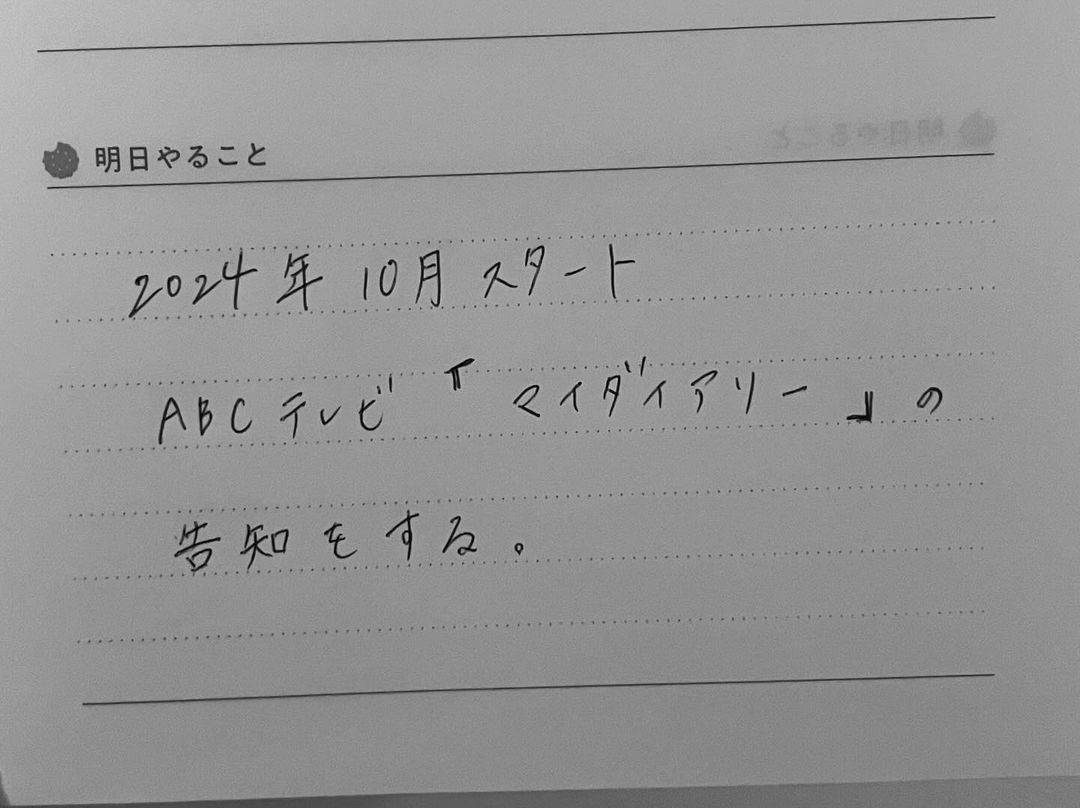 明日やること
2024年 10月 スタート
ABCテレビ『マイダイアリー』の
告知をする。